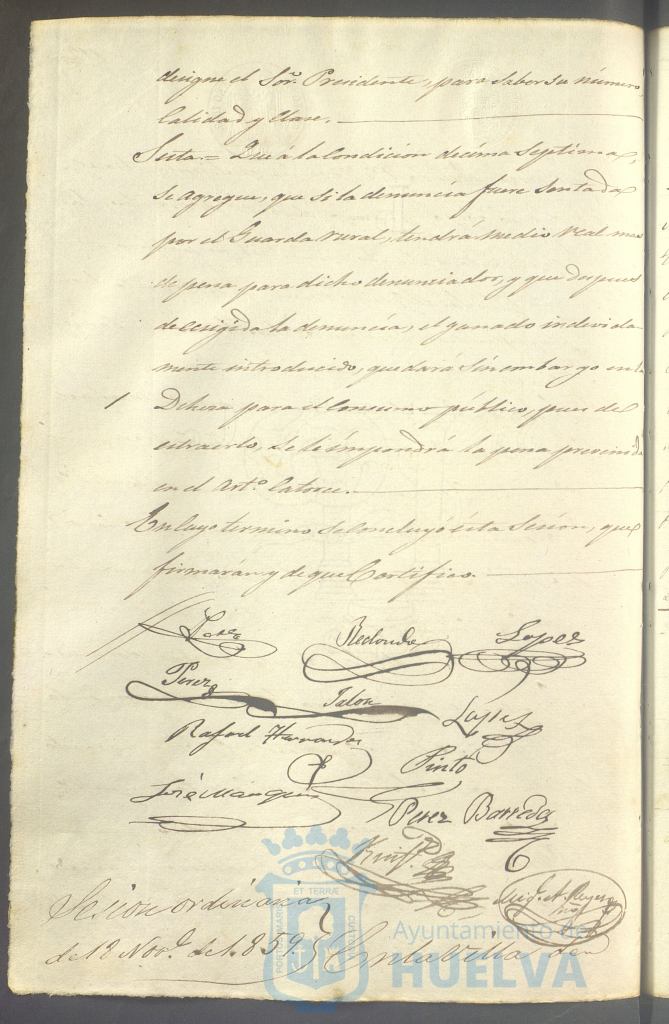 designe el Sor. Presidente, para saber su número,
Calidad y Clase.
Sesta.= Que á la Condición decima Septima,
se agregue, que si la denuncia fuere sentada
por el Guarda rural, tendrá medio real mas
de pena para dicho denunciador, y que despues
de exigida la denuncia, el ganado indevida-
mente introducido, quedará sin embargo en la
Dehesa para el Consumo público, pues de
estraerlo, se le impondrá la pena prevenida
en el Arto. Catorce.
En cuyo termino se concluyó ésta Sesión, que
firmarán y de que Certifico.
Redondo Lopez
Perez Jalon
Rafael Hernandez
Pinto
José Marquez
Perez Barreda
Sesion ordinaria
de 12 Nove. de 1.859. En la Villa de
ET TERRAE
PORTUS MARIS
CUSTODIA
Ayuntamiento de
HUELVA